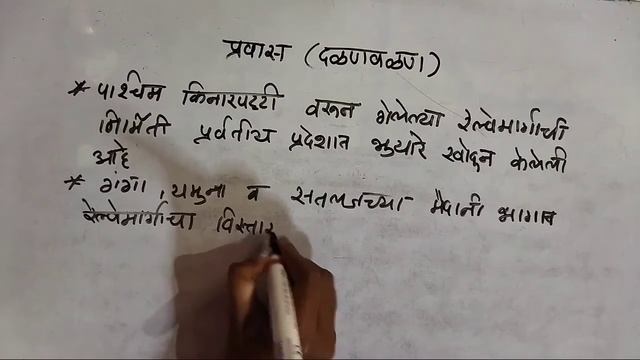 प्रवास (दळणवळण)
* पाश्चिम किनारपट्टी वरून गेलेल्या रेल्वेमार्गाची
निर्मिती प्रर्वतीय प्रदेशात भुयारे खोदुन केलेली
आहे
* गंगा, यमुना व सतलजच्या मैदानी भागात
रेल्वेमार्गाचा विस्तार